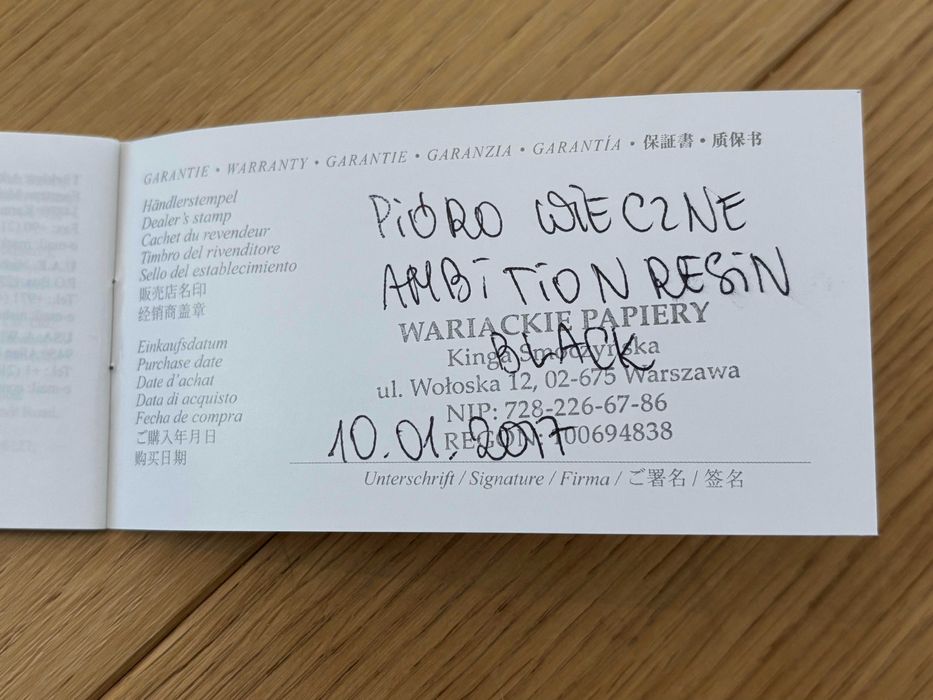 GARANTIE • WARRANTY • GARANTIE • GARANZIA • GARANTÍA • 保証書 • 质保书
Händlerstempel
Dealer's stamp
Cachet du revendeur
Timbro del rivenditore
Sello del establecimiento
販売店名印
经销商盖章
PIÓRO WIECZNE
AMBITION RESIN
BLACK
WARIACKIE PAPIERY
Kinga Smoczyńska
ul. Wołoska 12, 02-675 Warszawa
NIP: 728-226-67-86
REGON: 100694838
Einkaufsdatum
Purchase date
Date d'achat
Data di acquisto
Fecha de compra
ご購入年月日
购买日期
10.01.2017
Unterschrift / Signature / Firma / ご署名 / 签名